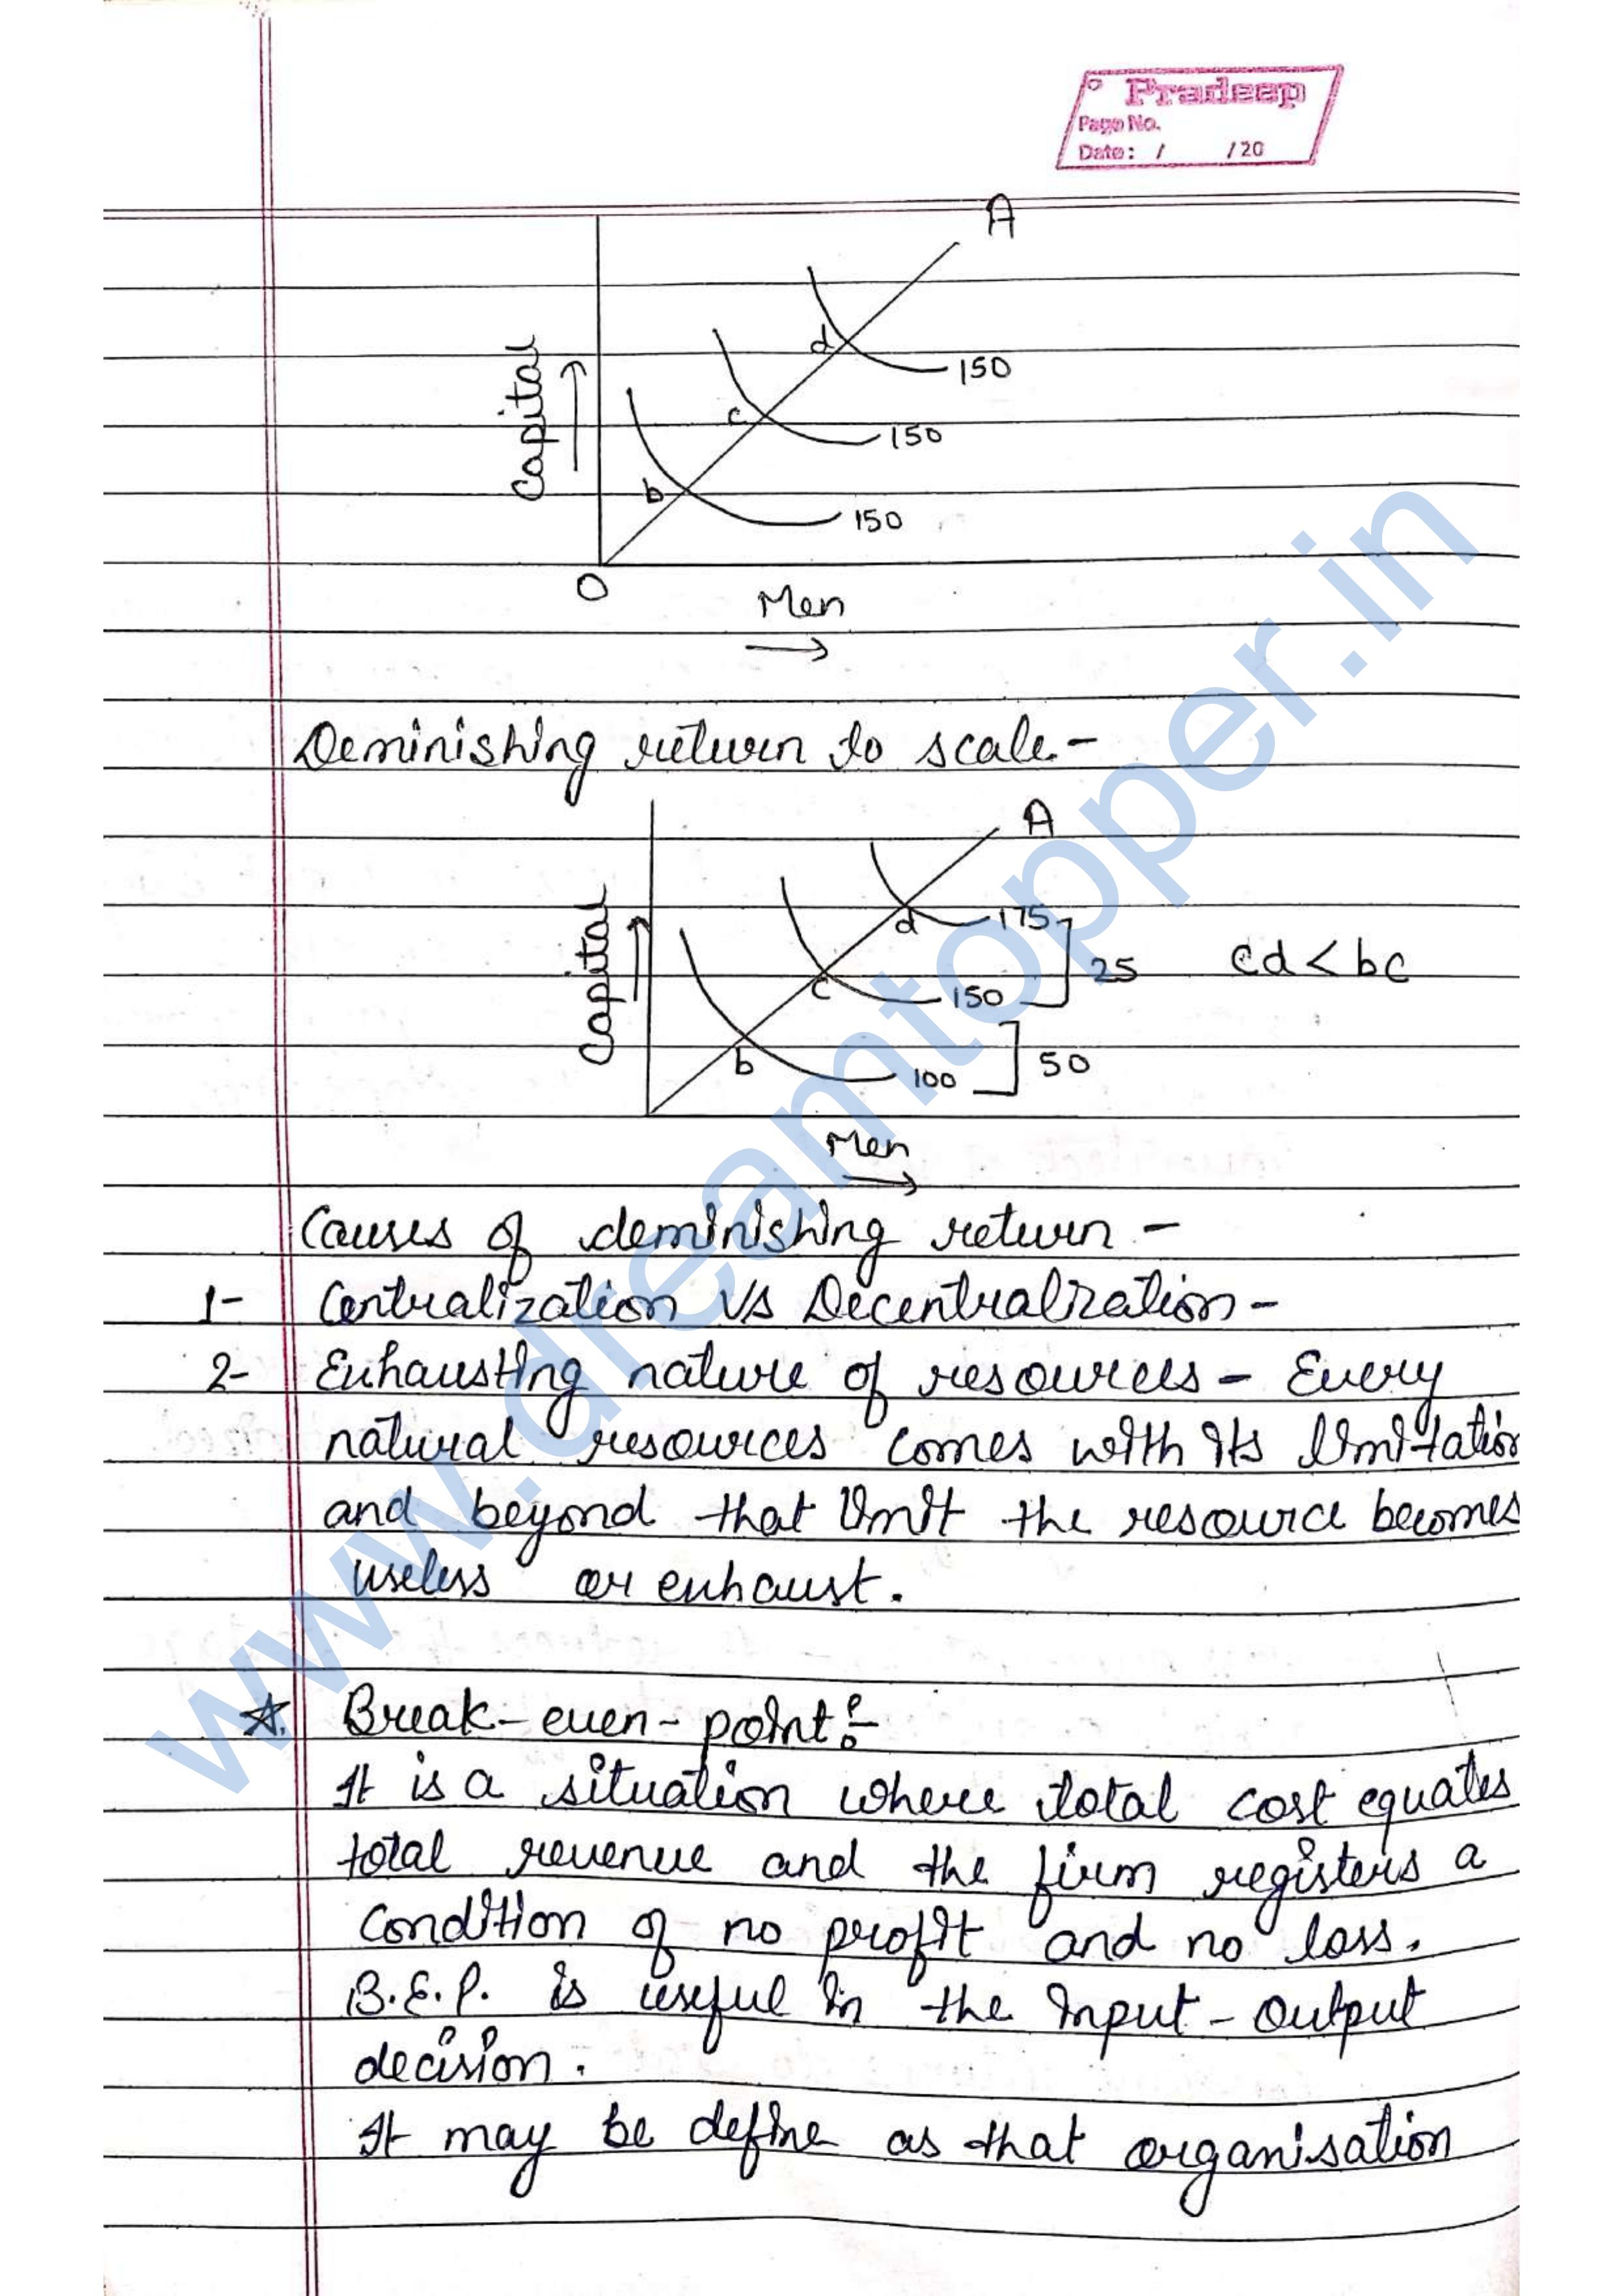 Pradeep
Page No.
Date: / /20
A
d
150
c
150
b
150
Capital
O
Men
Deminishing return to scale-
A
d
175
25
cd < bc
c
150
b
100
50
Capital
Men
Causes of deminishing return -
1- Centralization Vs Decentralization-
2- Exhausting nature of resources - Every
natural resources comes with its limitation
and beyond that limit the resource becomes
useless or exhaust.
Break-even-point:-
It is a situation where total cost equates
total revenue and the firm registers a
condition of no profit and no loss.
B.E.P. is useful in the Input-Output
decision.
It may be define as that organisation
www.dreamtopper.in